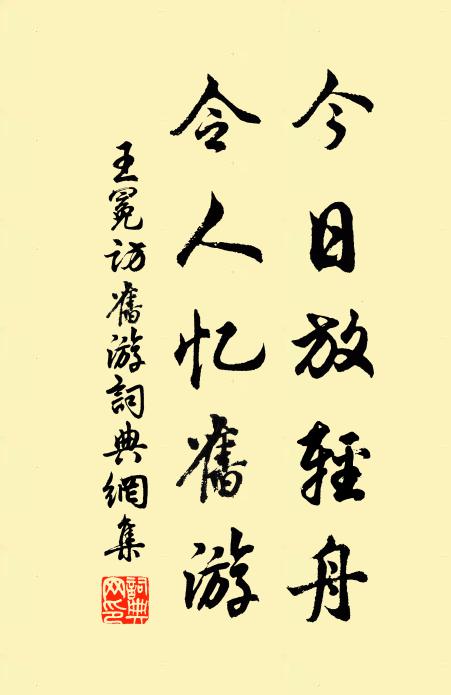 今日放輕舟
令人忆舊游
王冕訪舊游詞典網集
詞典网印